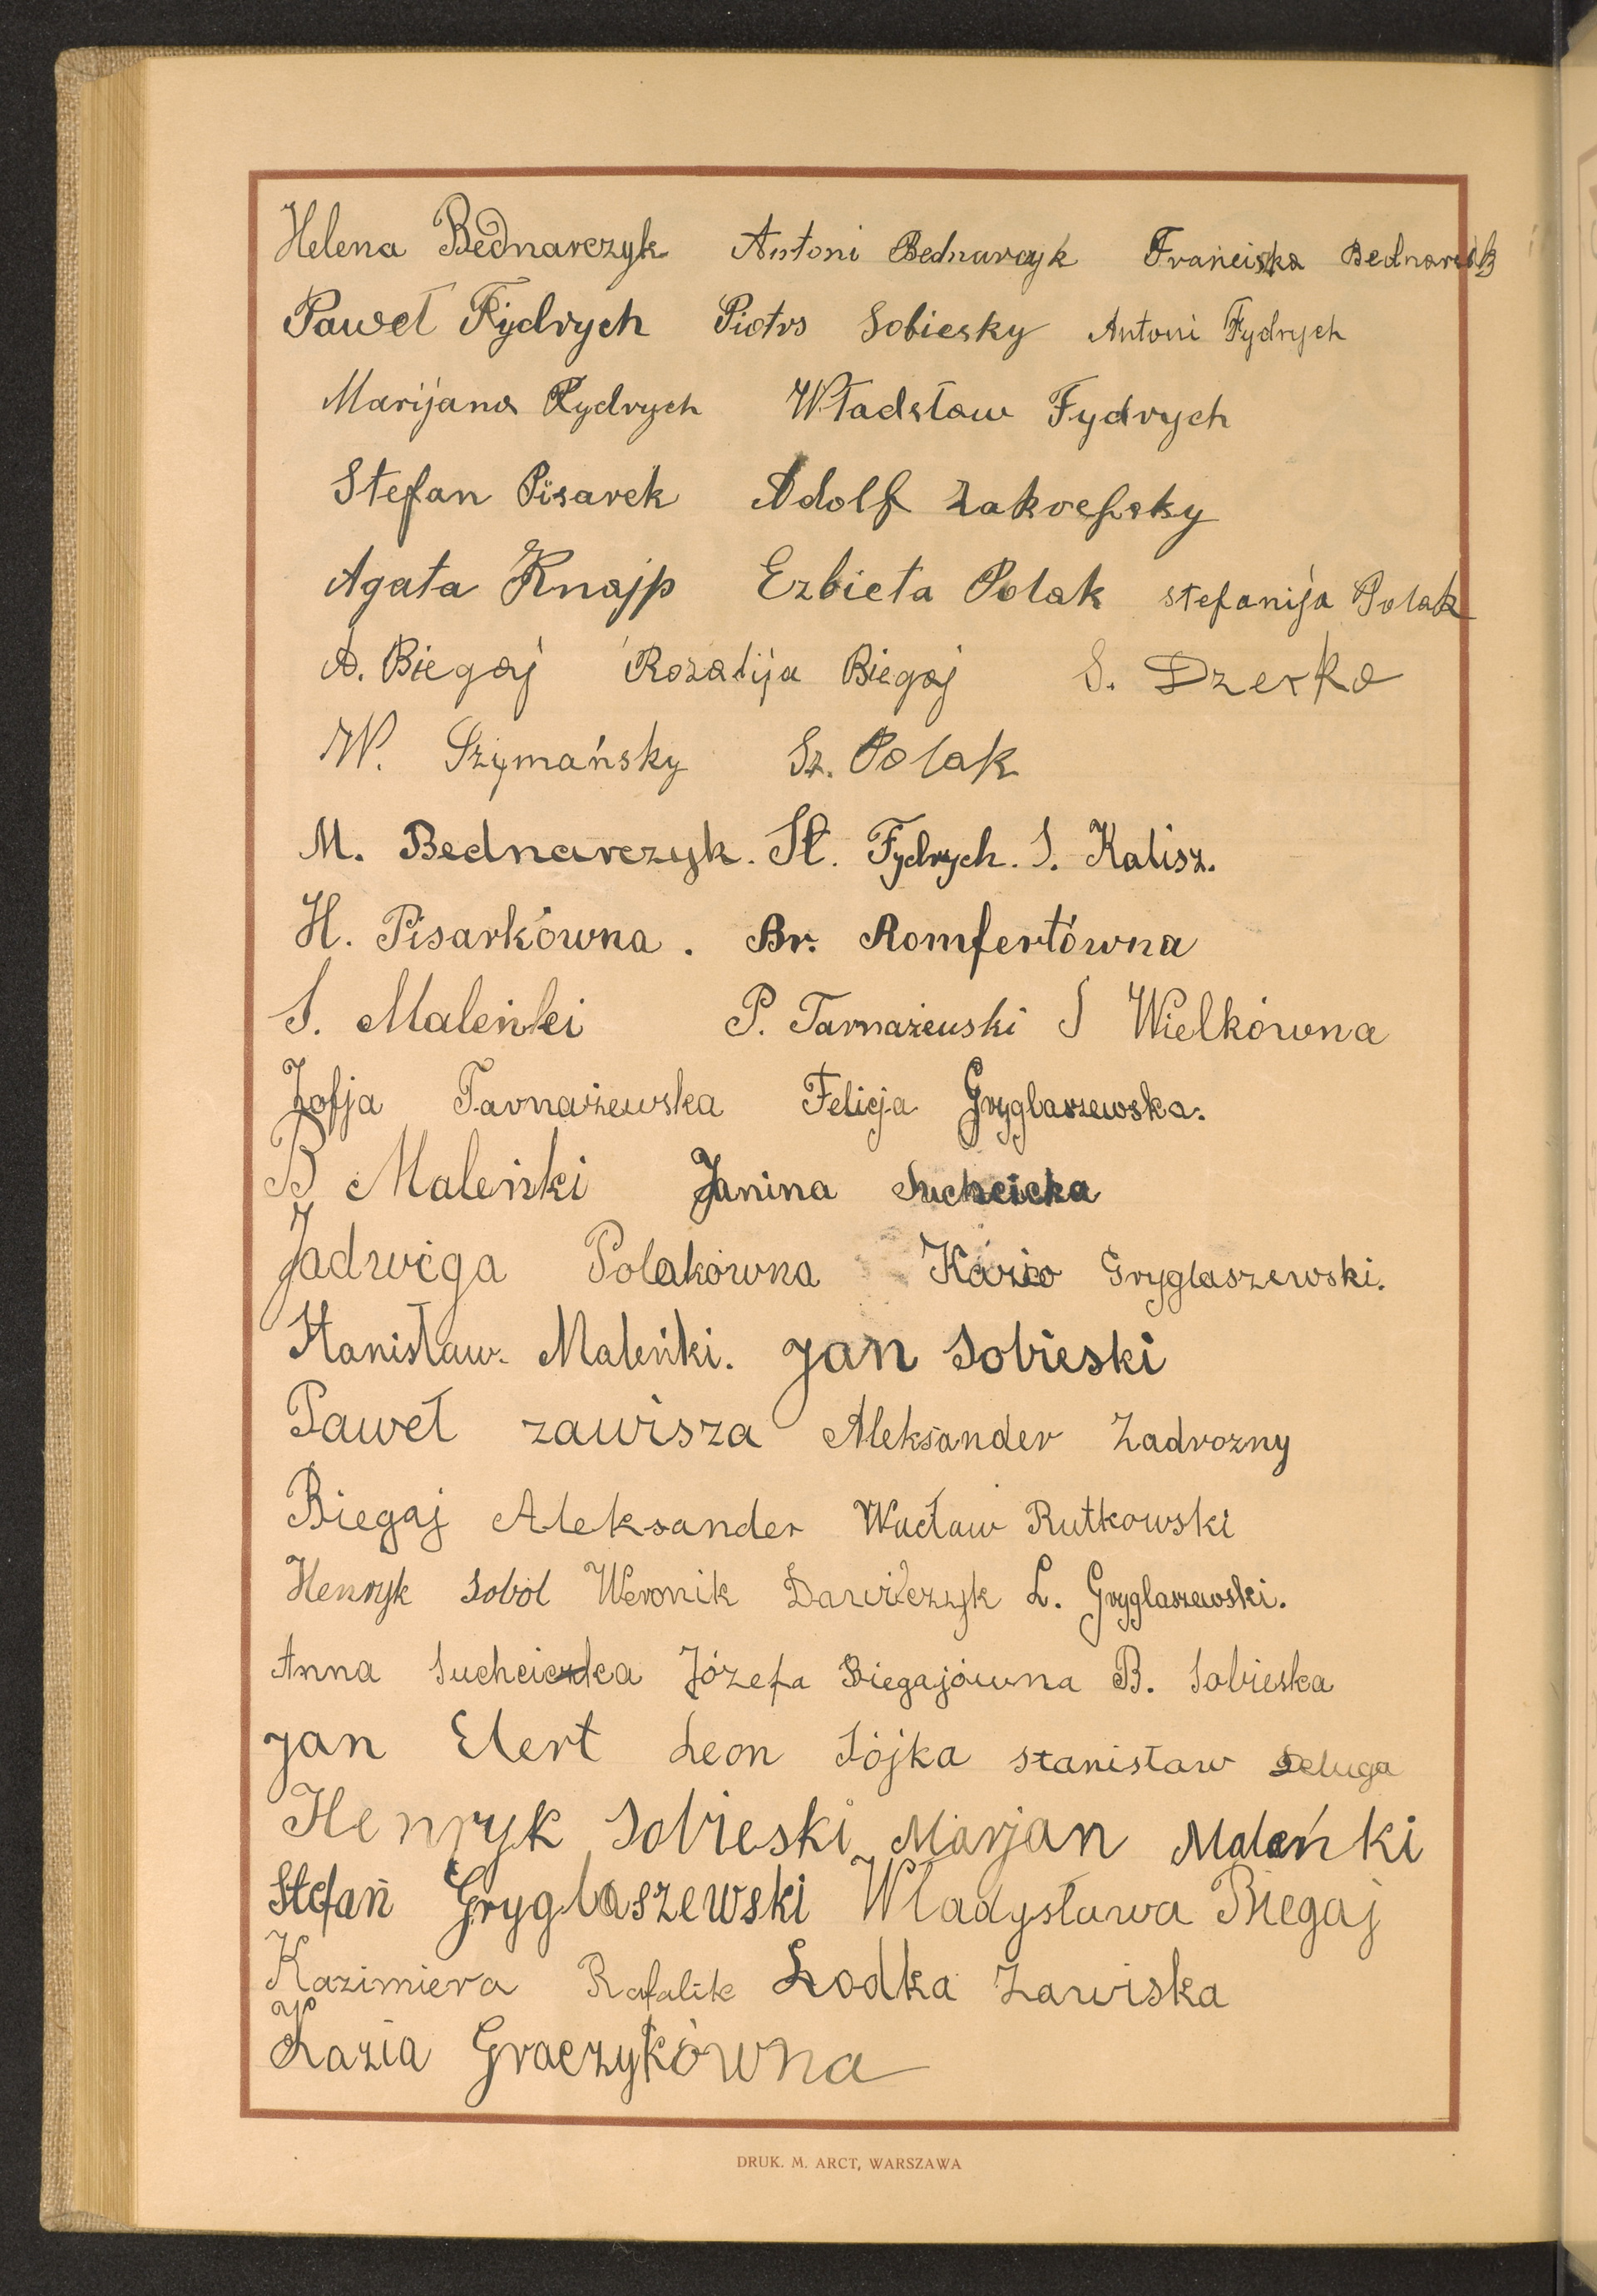 Helena Bednarczyk Antoni Bednarczyk Franciska Bednarczyk
Paweł Fydrych Piotrs Sobiesky Antoni Fydrych
Marijana Fydrych Władsław Fydrych
Stefan Pisarek Adolf
Agata Knajp Ezbieta Polak stefanija Polak
A. Biegaj Rozalija Biegaj S. Dzerko
W. Szymańsky Sz. Polak
M. Bednarczyk. St. Fydrych. S. Kalisz.
H. Pisarkówna. Br. Romfertówna
S. Maleńki P. Tarnażewski S Wielkówna
Zofja Tarnażewska Felicja Gryglaszewska.
B Maleńki Janina Suchcicka
Jadwiga Polakówna Gryglaszewski.
Stanisław. Maleńki. Jan Sobieski
Paweł zawisza Aleksander Zadrozny
Biegaj Aleksander Wacław Rutkowski
Henryk Sobol Weronik L. Gryglaszewski.
Anna Józefa Biegajówna B. Sobieska
Jan Elert Leon Sójka stanisław Deluga
Henryk Sobieski Marjan Maleńki
Stefan Gryglaszewski Władysława Biegaj
Kazimiera Rafalik Lodka Zawiska
Kazia Graczykówna
DRUK. M. ARCT, WARSZAWA